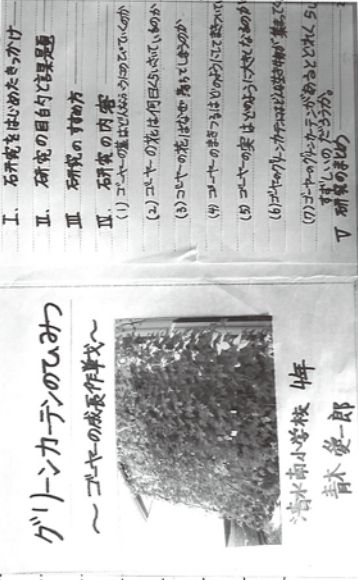 グリーンカーテンのひみつ
～ゴーヤの成長作戦～
清水南小学校 4年
青木 愛一郎
I. 研究をはじめたきっかけ
II. 研究の目的と課題
III 研究のすすめ方
IV 研究の内容
(1) ゴーヤーの葉はどんなふうについていくのか
(2) ゴーヤーの花は何日くらいさいているのか
(3) ゴーヤーの花はなぜ落ちてしまうのか
(4) ゴーヤーのまきつるはどのようにしてまきついて
(5) ゴーヤーの実はどのように大きくなるのか
(6) ゴーヤのグリーンカーテンにはどんな生き物が集まって
(7) ゴーヤーのグリーンカーテンがあるとどれくらい
すずしいのだろうか。
V 研究のまとめ